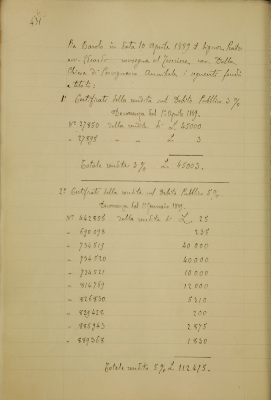 431
In Baselò in data 10 Aprile 1889 il Signor Conte
consegna al Genero
Annibale i seguenti fondi
e titoli:
1° Certificati della rendita sul Debito Pubblico 3%
decorrenza dal 1° Aprile 1889.
N° 27850 della rendita di £ 45000
" 27895 " " £ 3
Totale rendita 3% £ 45003.
2° Certificati della rendita sul Debito Pubblico 5%
decorrenza dal 1° Gennaio 1889.
N° 642826 della rendita di £ 25
" 690098 235
" 734519 40.000
" 734520 40.000
" 734521 10.000
" 814769 12.000
" 826830 5310
" 828428 200
" 885943 2.875
" 889368 1.830
Totale rendita 5% £ 112.475.